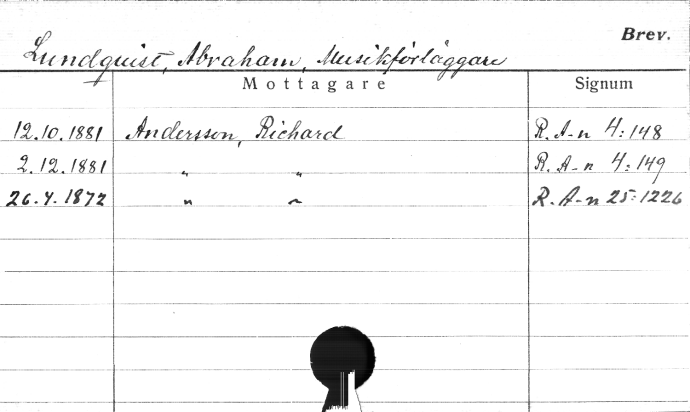 Brev.
Lundquist, Abraham, Musikförläggare
Mottagare Signum
12.10.1881 Andersson, Richard R. A-n 4:148
2.12.1881 " " R. A-n 4:149
26.4.1872 " " R. A-n 25:1226